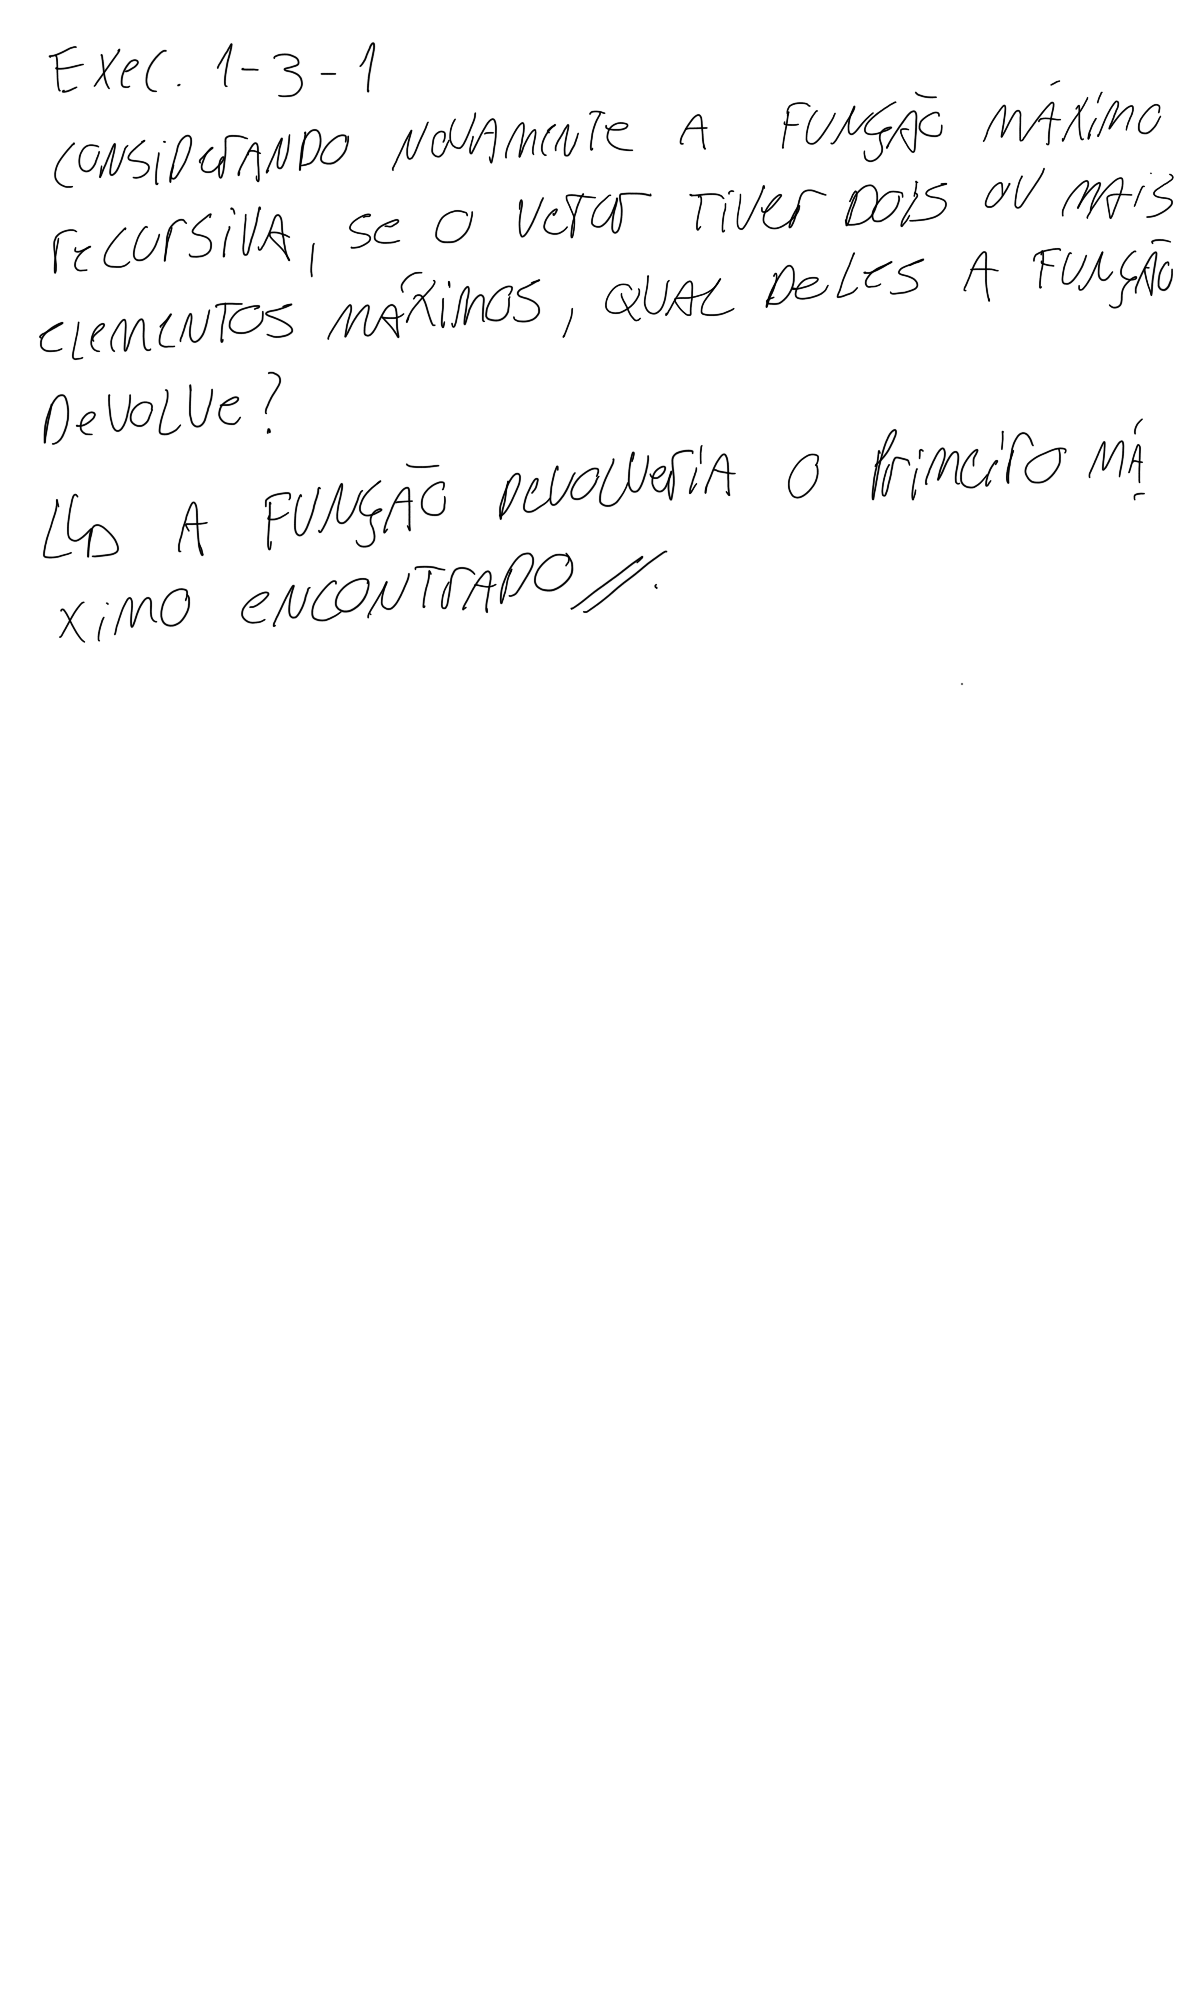 Exec. 1-3-1
CONSIDERANDO NOVAMENTE A FUNÇÃO MÁXIMO
RECURSIVA, SE O VETOR TIVER DOIS OU MAIS
ELEMENTOS MÁXIMOS, QUAL DELES A FUNÇÃO
DEVOLVE?
A FUNÇÃO DEVOLVERIA O PRIMEIRO MÁ
XIMO ENCONTRADO//.